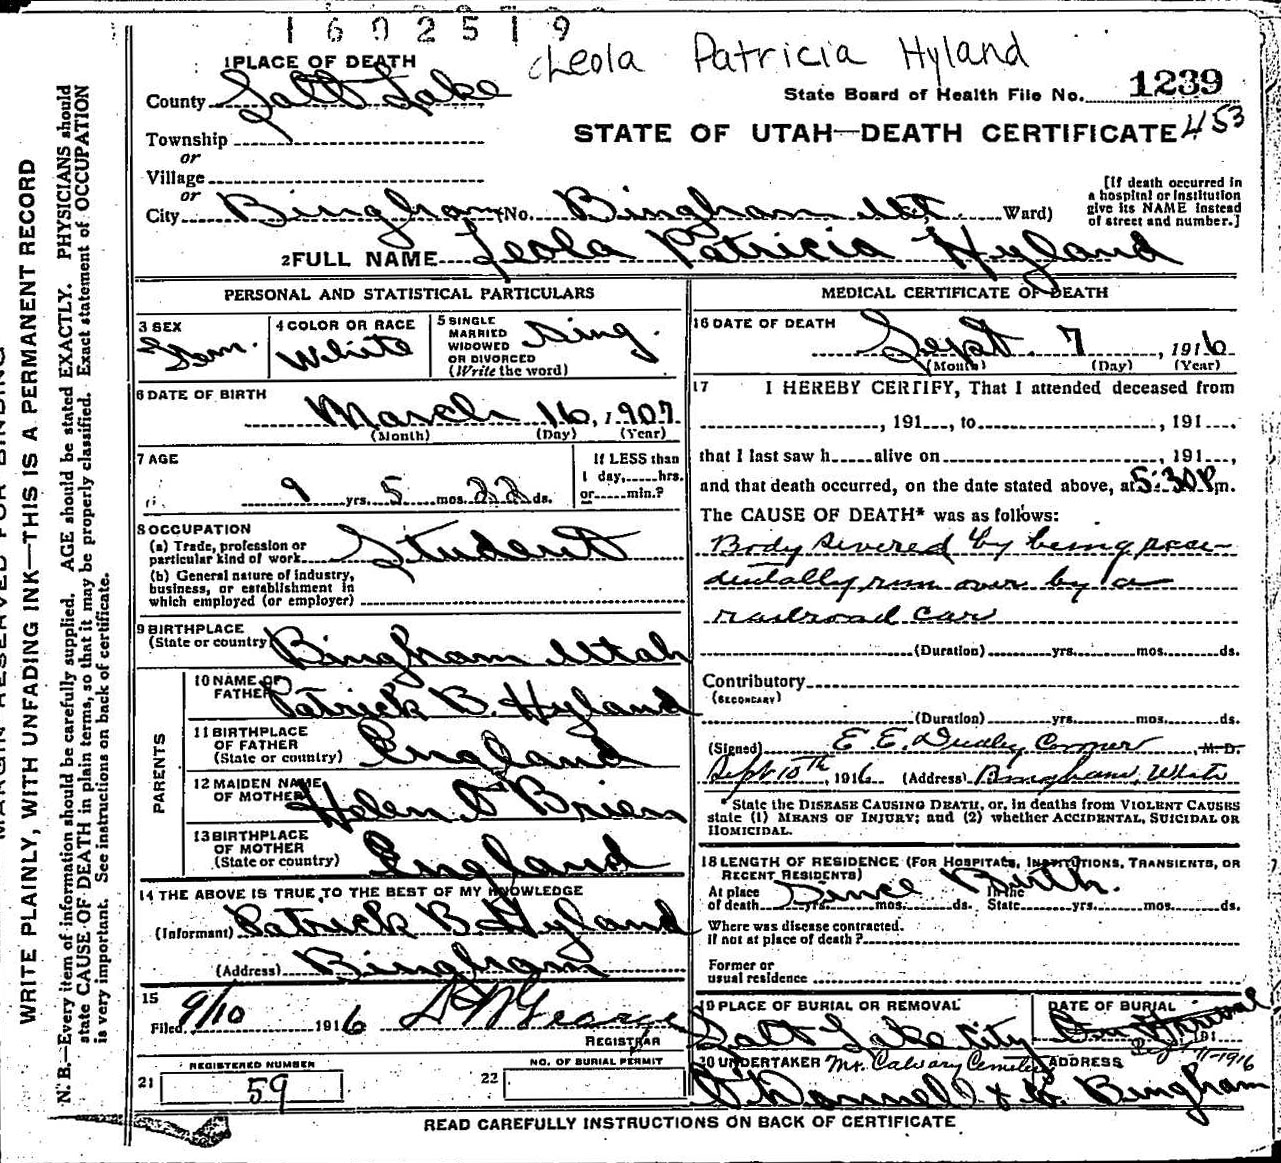 1602519
Leola Patricia Hyland
1 PLACE OF DEATH
County Salt Lake
State Board of Health File No. 1239
Township
STATE OF UTAH—DEATH CERTIFICATE 453
or
Village
or
City Bingham No. Bingham Ut. Ward)
[If death occurred in
a hospital or institution
give its NAME instead
of street and number.]
2 FULL NAME Leola Patricia Hyland
PERSONAL AND STATISTICAL PARTICULARS
3 SEX
Fem.
4 COLOR OR RACE
White
5 SINGLE
MARRIED
WIDOWED
OR DIVORCED
(Write the word)
Sing.
6 DATE OF BIRTH
March 16, 1907
(Month) (Day) (Year)
7 AGE
9 yrs. 5 mos. 22 ds.
If LESS than
1 day, hrs.
or min.?
8 OCCUPATION
(a) Trade, profession or
particular kind of work Student
(b) General nature of industry,
business, or establishment in
which employed (or employer)
9 BIRTHPLACE
(State or country) Bingham Utah
PARENTS
10 NAME OF
FATHER Patrick B. Hyland
11 BIRTHPLACE
OF FATHER
(State or country) England
12 MAIDEN NAME
OF MOTHER Helen O'Brien
13 BIRTHPLACE
OF MOTHER
(State or country) England
14 THE ABOVE IS TRUE TO THE BEST OF MY KNOWLEDGE
(Informant) Patrick B Hyland
(Address) Bingham
15
Filed 9/10 1916
REGISTRAR
REGISTERED NUMBER
21 59
NO. OF BURIAL PERMIT
22
MEDICAL CERTIFICATE OF DEATH
16 DATE OF DEATH
Sept. 7, 1916
(Month) (Day) (Year)
17 I HEREBY CERTIFY, That I attended deceased from
, 191 , to , 191 ,
that I last saw h alive on , 191 ,
and that death occurred, on the date stated above, at 5:30 P m.
The CAUSE OF DEATH* was as follows:
Body severed by being acci-
dentally run over by a
railroad car
(Duration) yrs. mos. ds.
Contributory
(SECONDARY)
(Duration) yrs. mos. ds.
(Signed) E. E. Dudley Corner M. D.
Sept 10th, 1916 (Address) Bingham, Utah
*State the DISEASE CAUSING DEATH, or, in deaths from VIOLENT CAUSES
state (1) MEANS OF INJURY; and (2) whether ACCIDENTAL, SUICIDAL OR
HOMICIDAL.
18 LENGTH OF RESIDENCE (FOR HOSPITALS, INSTITUTIONS, TRANSIENTS, OR
RECENT RESIDENTS)
Since Birth.
At place In the
of death yrs. mos. ds. State yrs. mos. ds.
Where was disease contracted.
if not at place of death?
Former or
usual residence
19 PLACE OF BURIAL OR REMOVAL
Salt Lake City
DATE OF BURIAL
On Arrival
191
Sept 11-1916
20 UNDERTAKER Mt. Calvary Cemetery
O'Donnell & Co.
ADDRESS
Bingham
READ CAREFULLY INSTRUCTIONS ON BACK OF CERTIFICATE
MARGIN RESERVED FOR BINDING
WRITE PLAINLY, WITH UNFADING INK—THIS IS A PERMANENT RECORD
N. B.—Every item of information should be carefully supplied. AGE should be stated EXACTLY. PHYSICIANS should
state CAUSE OF DEATH in plain terms, so that it may be properly classified. Exact statement of OCCUPATION
is very important. See instructions on back of certificate.